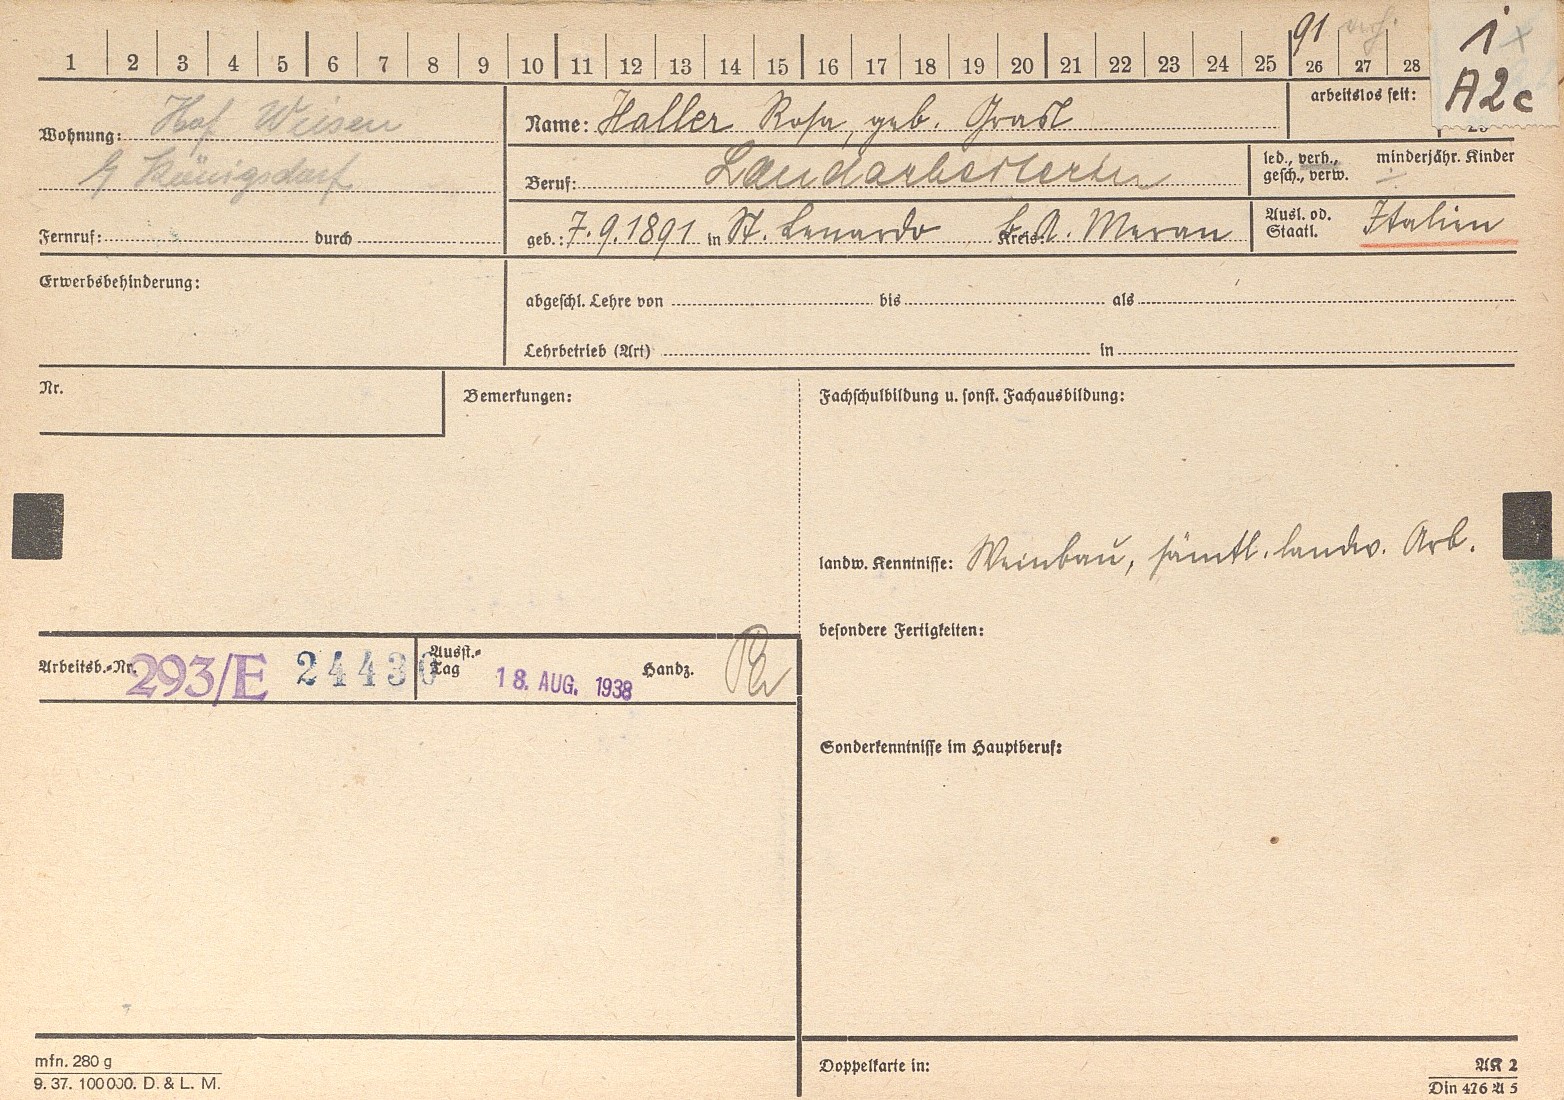 1 2 3 4 5 6 7 8 9 10 11 12 13 14 15 16 17 18 19 20 21 22 23 24 25 26 27 28
91
1
A2c
arbeitslos seit:
Wohnung: Hof Wiesen
b/ Königsdorf
Fernruf: durch
Name: Haller Rosa, geb. Grasl
Beruf: Landarbeiterin
led., verh., gesch., verw.
minderjähr. Kinder
geb.: 7.9.1891 in St. Lenardo Kreis: B.A. Meran
Ausl. od. Staatl. Italien
Erwerbsbehinderung:
abgeschl. Lehre von bis als
Lehrbetrieb (Art) in
Nr.
Bemerkungen:
Fachschulbildung u. sonst. Fachausbildung:
landw. Kenntnisse: Weinbau, sämtl. landw. Arb.
besondere Fertigkeiten:
Arbeitsb.-Nr. 293/E 24430
Ausst.-Tag 18. AUG. 1938
Handz.
Sonderkenntnisse im Hauptberuf:
mfn. 280 g
9. 37. 100000. D. & L. M.
Doppelkarte in:
AK 2
Din 476 A 5